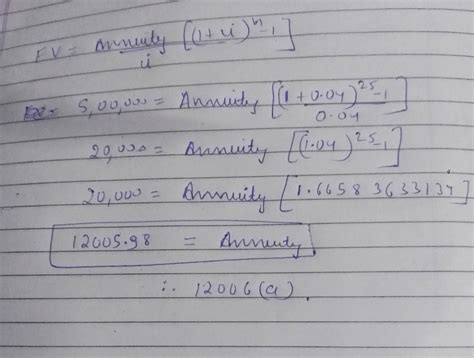 FV = Annuity/i [(1+i)^n-1]
5,00,000 = Annuity [(1+0.04)^25-1 / 0.04]
20,000 = Annuity [(1.04)^25-1]
20,000 = Annuity [1.66583633134]
12005.98 = Annuity
∴ 12006 (a)